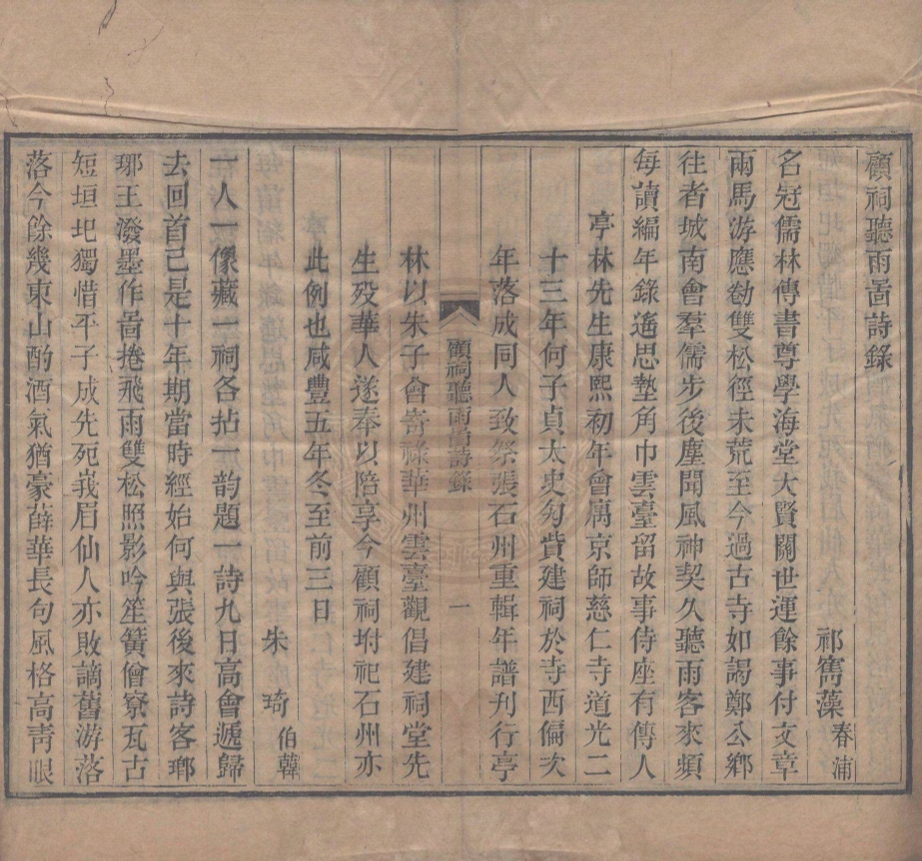 顧祠聽雨啚詩錄
祁寯藻春浦
名冠儒林傳書尊學海堂大賢關世運餘事付文章
兩馬游應勌雙松徑未荒至今過古寺如謁鄭公鄉
往者城南會羣儒步後塵聞風神契久聽雨客來頻
每讀編年錄遙思墊角巾雲臺留故事侍座有傳人
亭林先生康熙初年會寓京師慈仁寺道光二
十三年何子貞太史匄貲建祠於寺西偏次
年落成同人致祭張石州重輯年譜刊行亭
顧祠聽雨啚詩錄
一
林以朱子會寄祿華州雲臺觀倡建祠堂先
生歿華人遂奉以陪享今顧祠坿祀石州亦
此例也咸豐五年冬至前三日
朱琦伯韓
一人一像藏一祠各拈一韵題一詩九日高會遞歸
去回首已是十年期當時經始何與張後來詩客瑯
琊王潑墨作啚捲飛雨雙松照影吟笙簧僧寮瓦古
短垣圯獨惜平子成先死峩眉仙人亦敗謫舊游落
落今餘幾東山酌酒氣猶豪薛華長句風格高靑眼